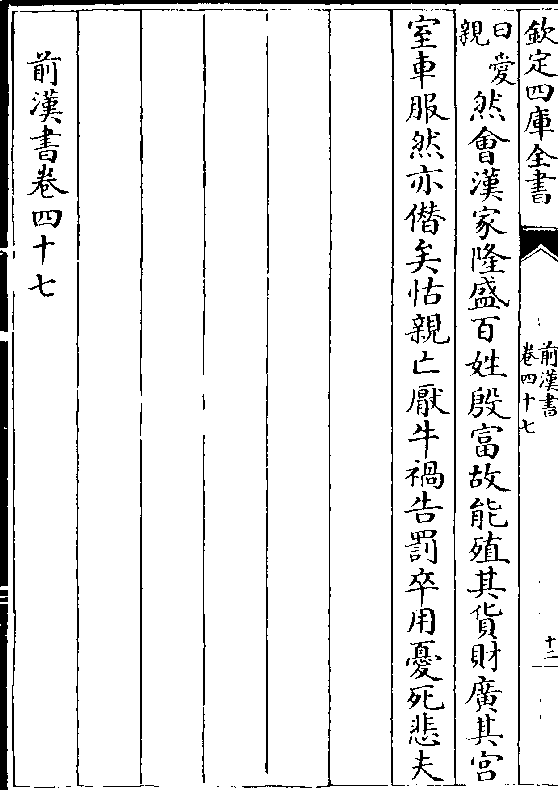 欽定四庫全書
前漢書
卷四十七
十二
曰愛
親
然會漢家隆盛百姓殷富故能殖其貨財廣其宮
室車服然亦僭矣怙親亡厭牛禍告罰卒用憂死悲夫
前漢書卷四十七